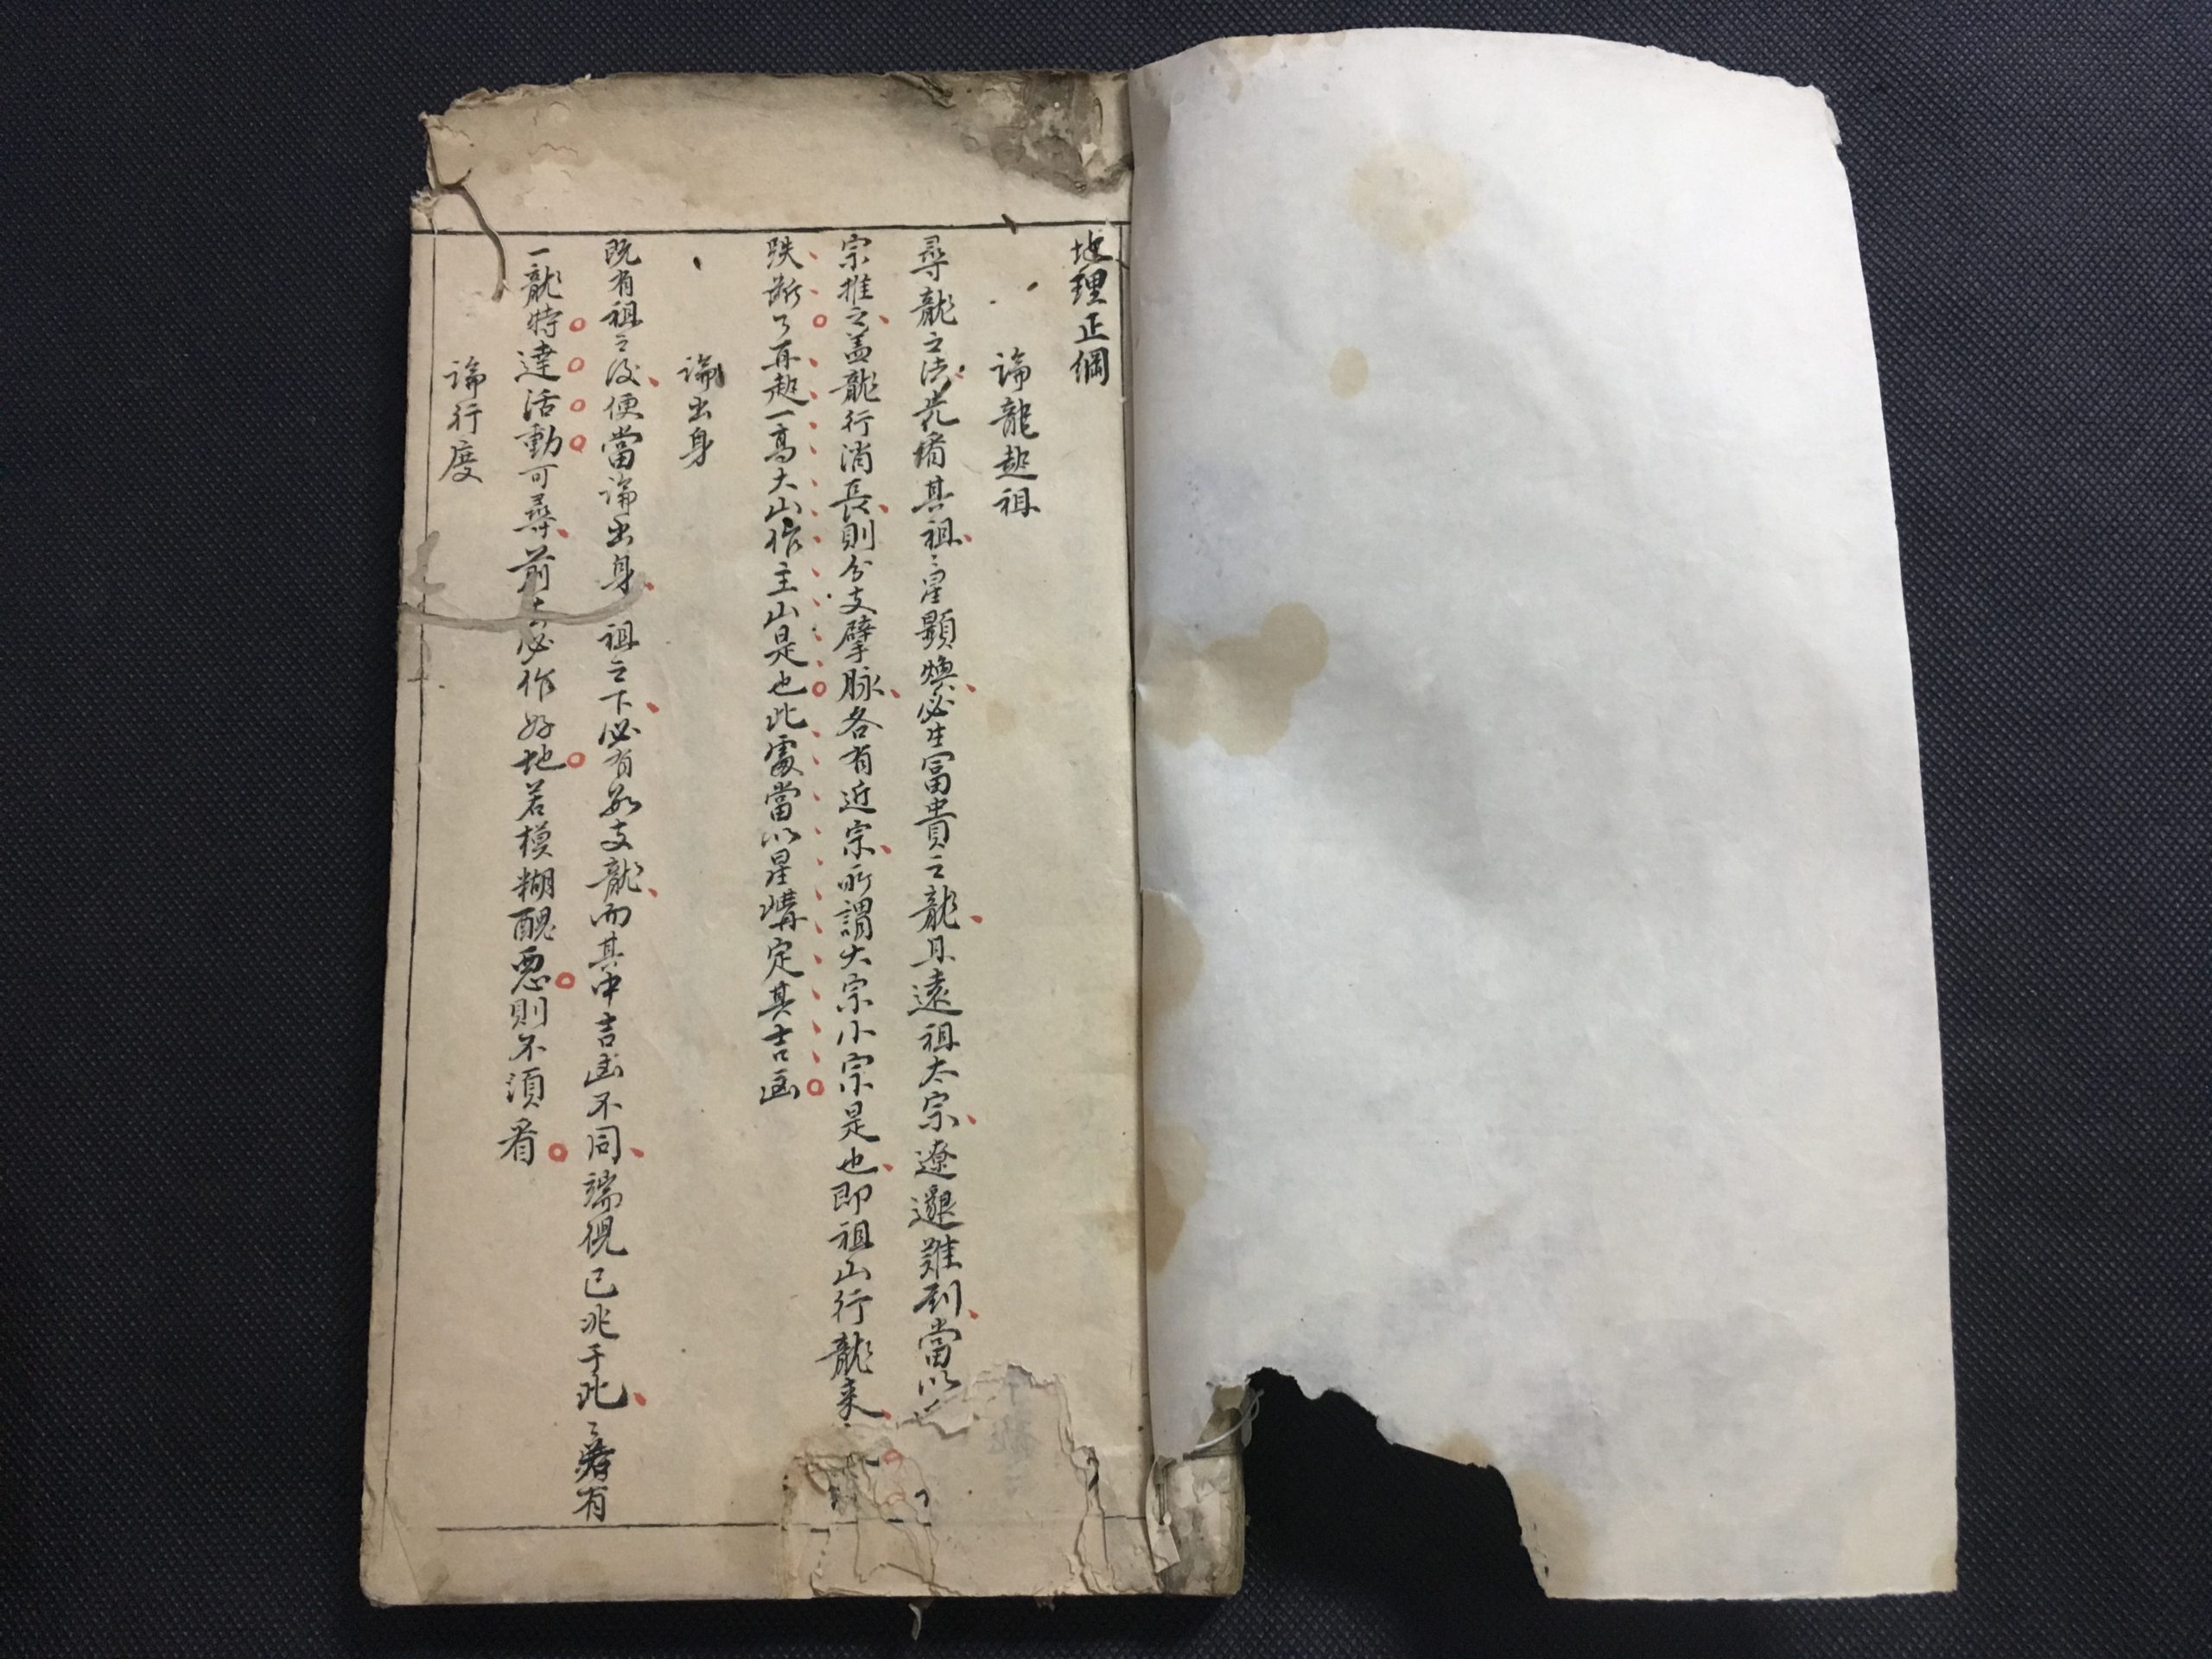 地理正綱
論龍起祖
尋龍之法先看其祖〻星顯煥必生富貴之龍且遠祖太宗遼邈難到當以
宗推之盖龍行消長則分支擘脉各有近宗所謂大宗小宗是也即祖山行龍来
跌断了再起一高大山作主山是也此處當以星搆定其吉凶
論出身
既有祖之後便當論出身祖之下必有数支龍而其中吉凶不同端倪已兆于此〻若有
一龍特達活動可尋前去必作好地若模糊醜惡則不須看
論行度